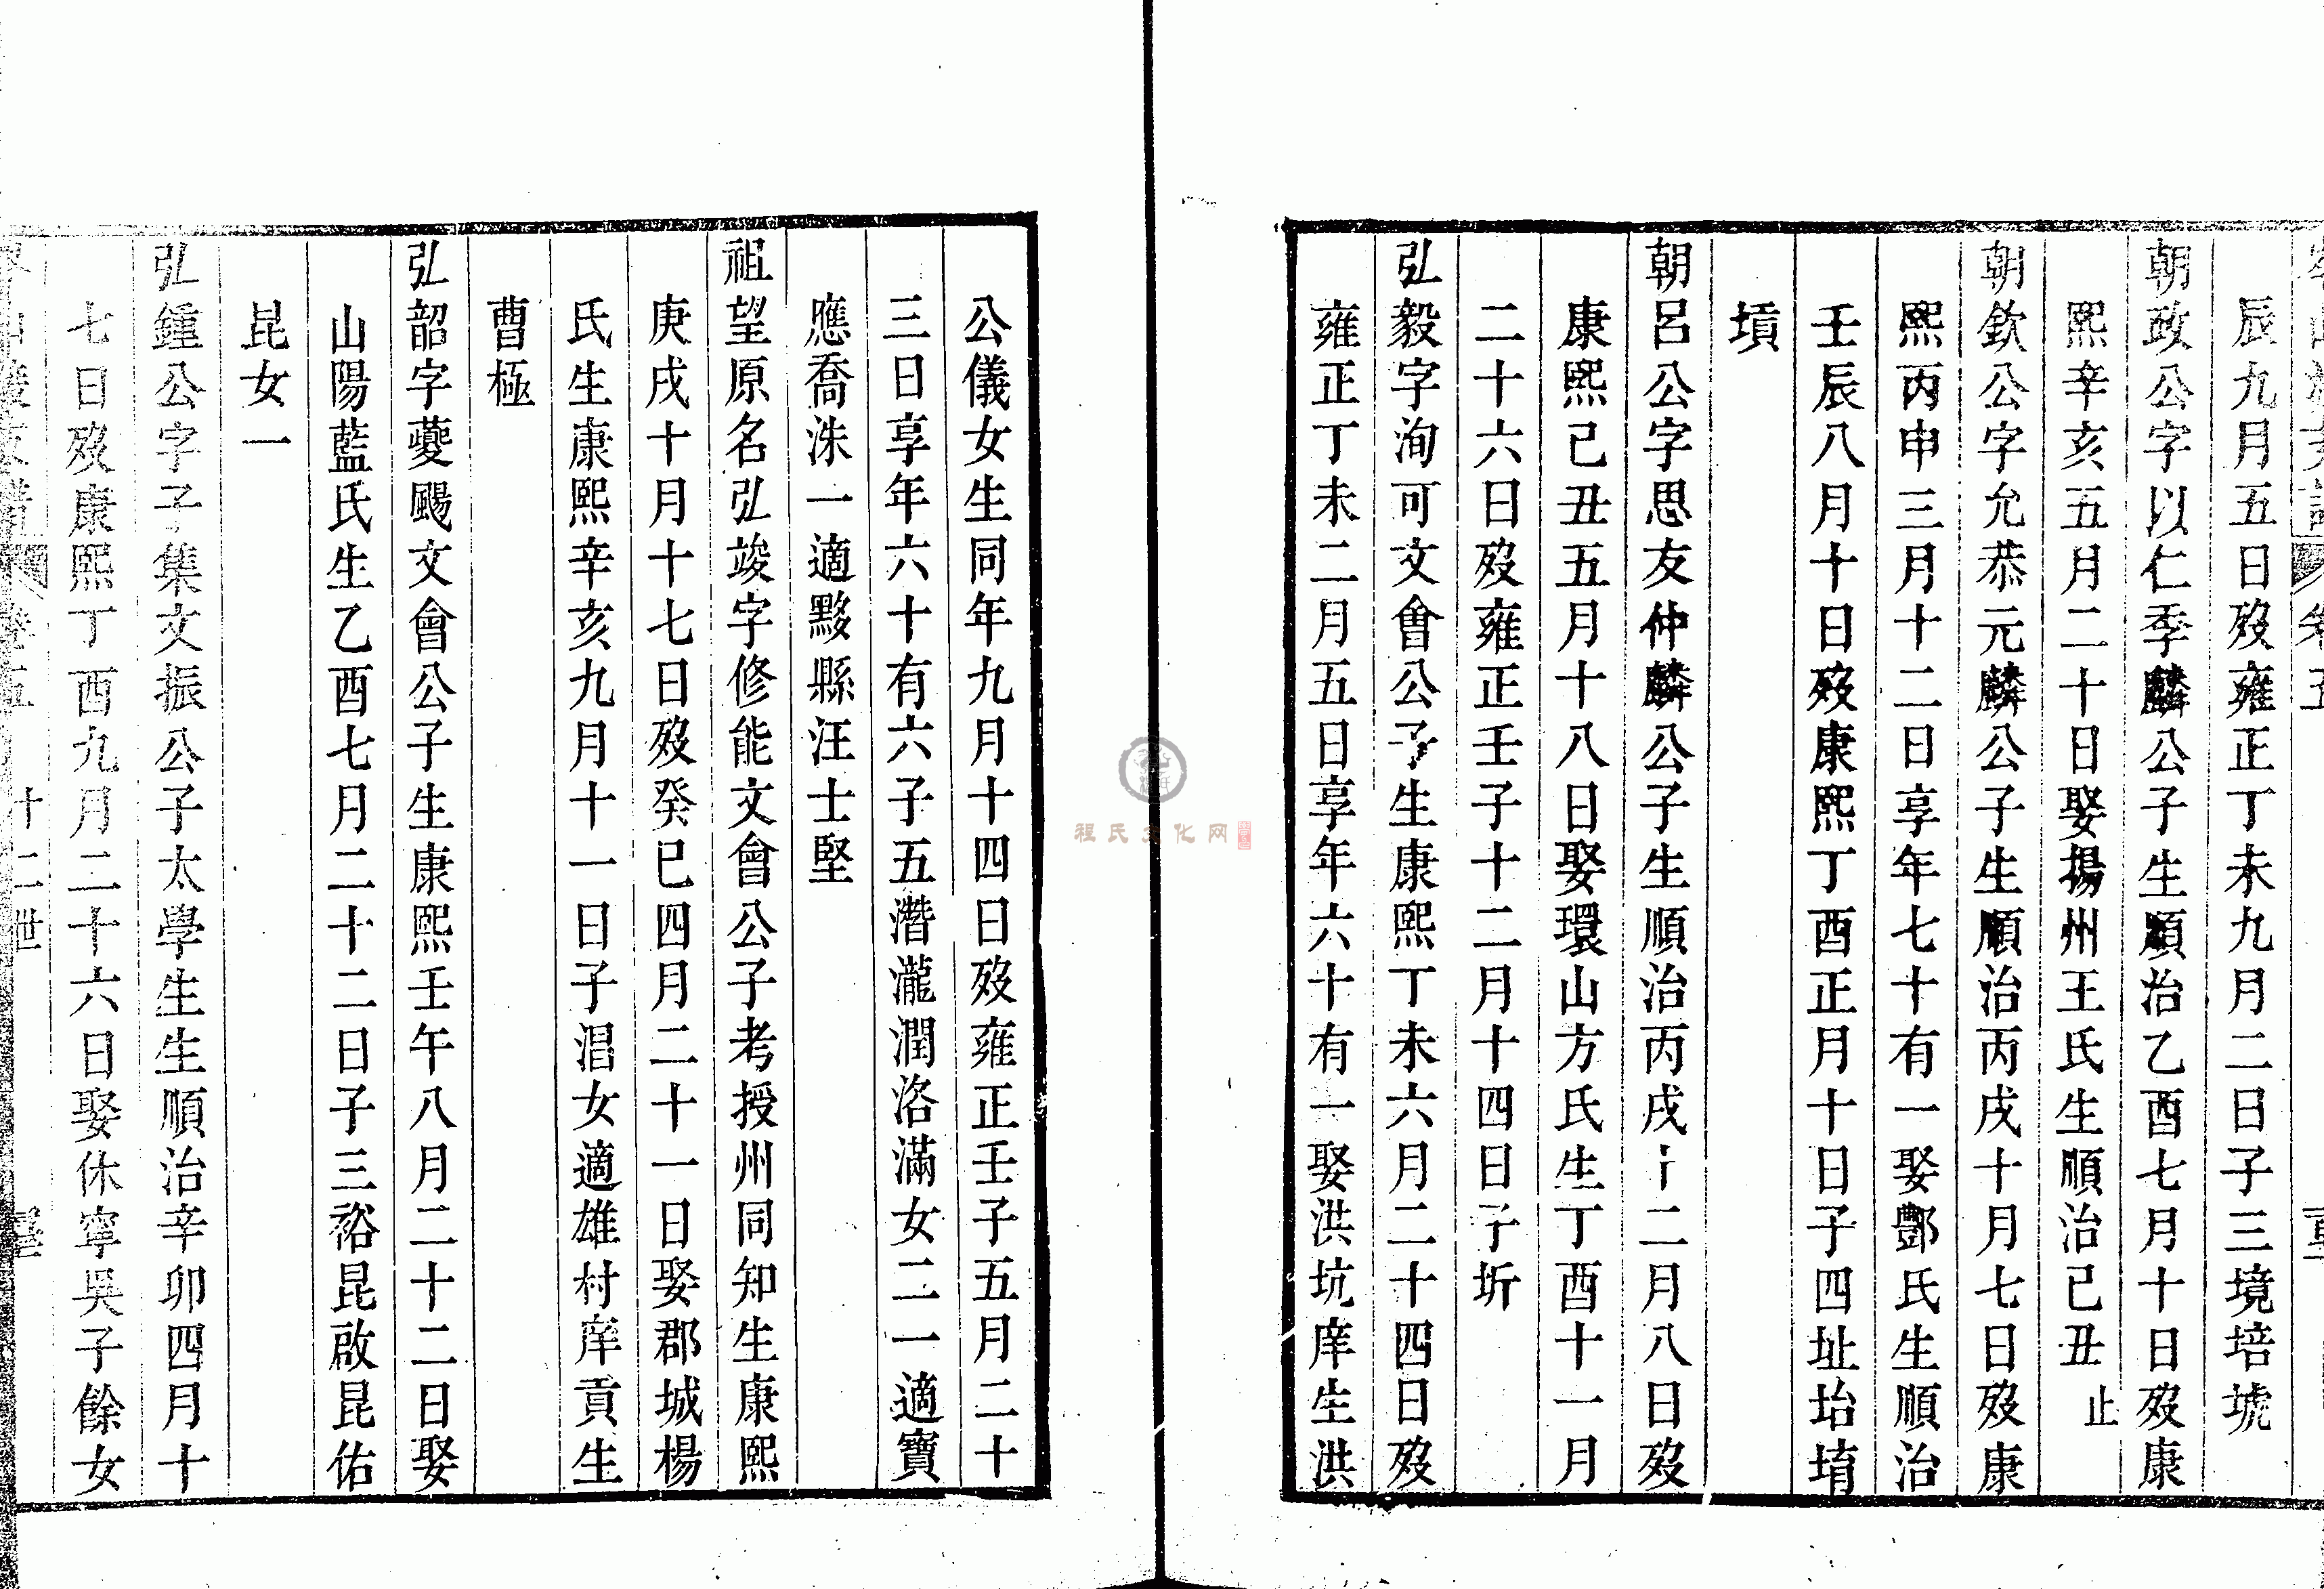 辰九月五日歿雍正丁未九月二日子三境培墟
朝政公字以仁季麟公子生順治乙酉七月十日歿康
熙辛亥五月二十日娶揚州王氏生順治己丑 止
朝欽公字允恭元麟公子生順治丙戌十月七日歿康
熙丙申三月十二日享年七十有一娶鄷氏生順治
壬辰八月十日歿康熙丁酉正月十日子四址坮堉
墳
朝呂公字思友仲麟公子生順治丙戌十二月八日歿
康熙己丑五月十八日娶環山方氏生丁酉十一月
二十六日歿雍正壬子十二月十四日子圻
弘毅字洵可文會公子生康熙丁未六月二十四日歿
雍正丁未二月五日享年六十有一娶洪坑庠生洪
公儀女生同年九月十四日歿雍正壬子五月二十
三日享年六十有六子五濳瀧潤洛滿女二一適寶
應喬洙一適黟縣汪士堅
祖望原名弘竣字修能文會公子考授州同知生康熙
庚戌十月十七日歿癸巳四月二十一日娶郡城楊
氏生康熙辛亥九月十一日子淐女適雄村庠貢生
曹極
弘韶字蘷颺文會公子生康熙壬午八月二十二日娶
山陽藍氏生乙酉七月二十二日子三裕昆啟昆佑
昆女一
弘鍾公字子集文振公子太學生生順治辛卯四月十
七日歿康熙丁酉九月二十六日娶休寧吳子餘女
十二世
程氏文化网